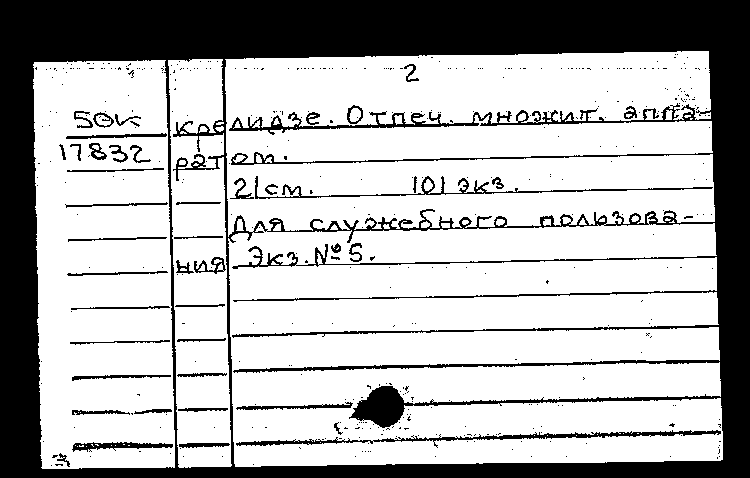 2
50к крелидзе. Отпеч. множит. аппа-
17832 ратом.
21см. 101 экз.
Для служебного пользова-
ния Экз. № 5.